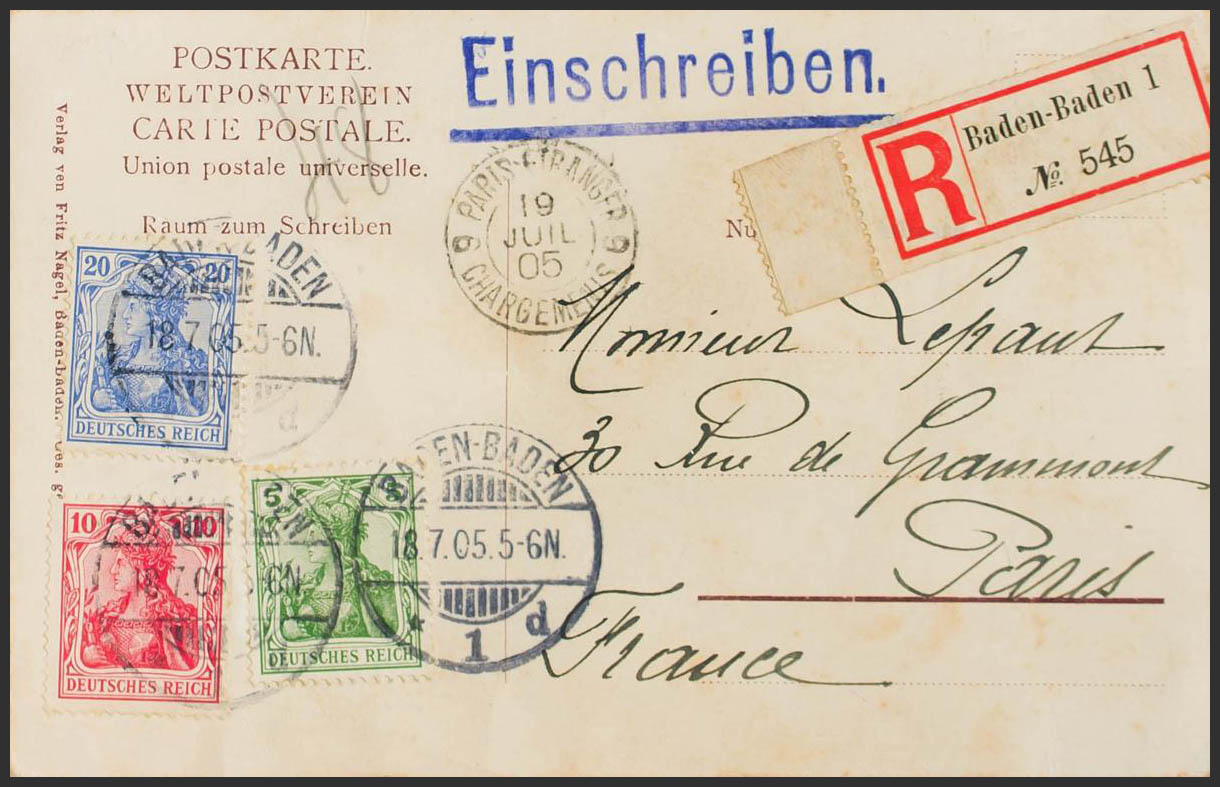 POSTKARTE.
WELTPOSTVEREIN
CARTE POSTALE.
Union postale universelle.
Raum zum Schreiben
Verlag von Fritz Nagel, Baden-Baden. Ges.
Einschreiben.
R
Baden-Baden 1
No. 545
PARIS ETRANGER
19
JUIL
05
9 9
CHARGEMENTS
Nu
Monsieur Lepaut
30 Rue de Grammont
Paris
France
20 20
DEUTSCHES REICH
BADEN-BADEN
18.7.05.5-6N.
d
10 10
DEUTSCHES REICH
18.7.05 6N.
5 5
DEUTSCHES REICH
BADEN-BADEN
18.7.05.5-6N.
* 1 d